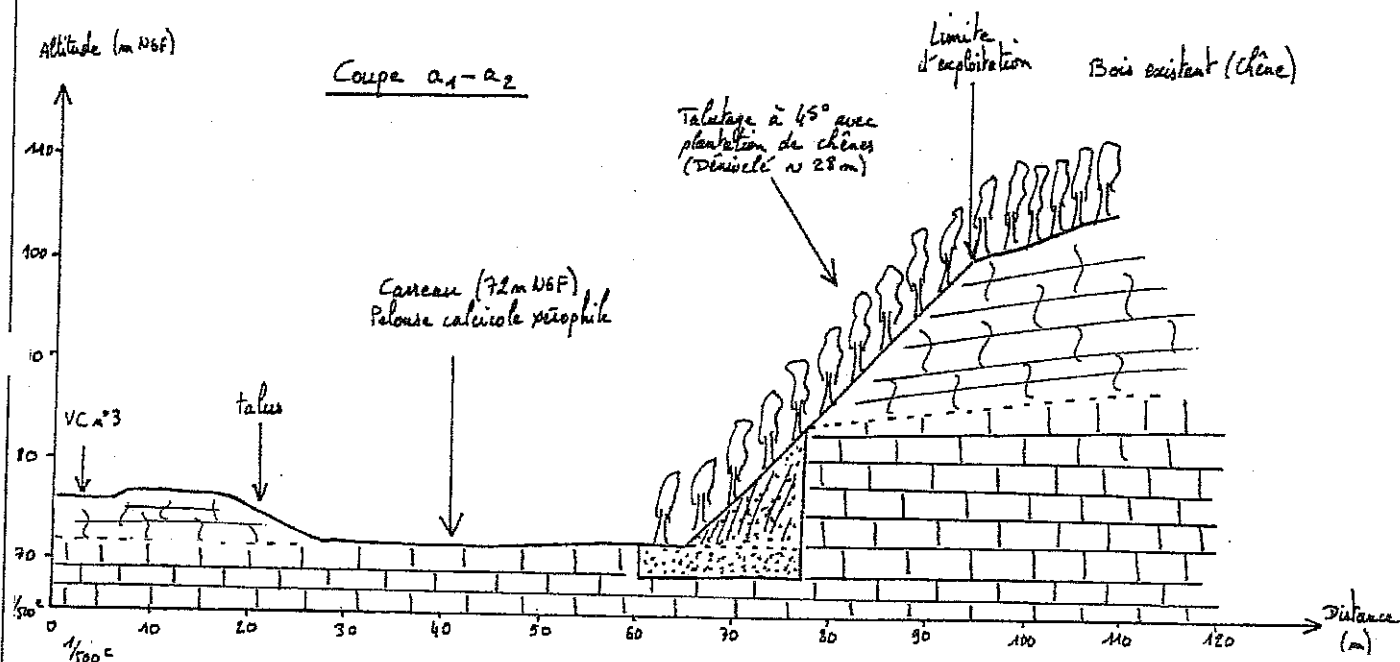 Altitude (m NGF)
Coupe a1-a2
Limite
d'exploitation
Bois existant (Chêne)
Talutage à 45° avec
plantation de chênes
(Dénivelé ~ 28 m)
Carreau (72 m NGF)
Pelouse calcicole xérophile
VC n°3
talus
110
100
10
80
70
1/500e
0 10 20 30 40 50 60 70 80 90 100 110 120
Distance
(m)
1/500e